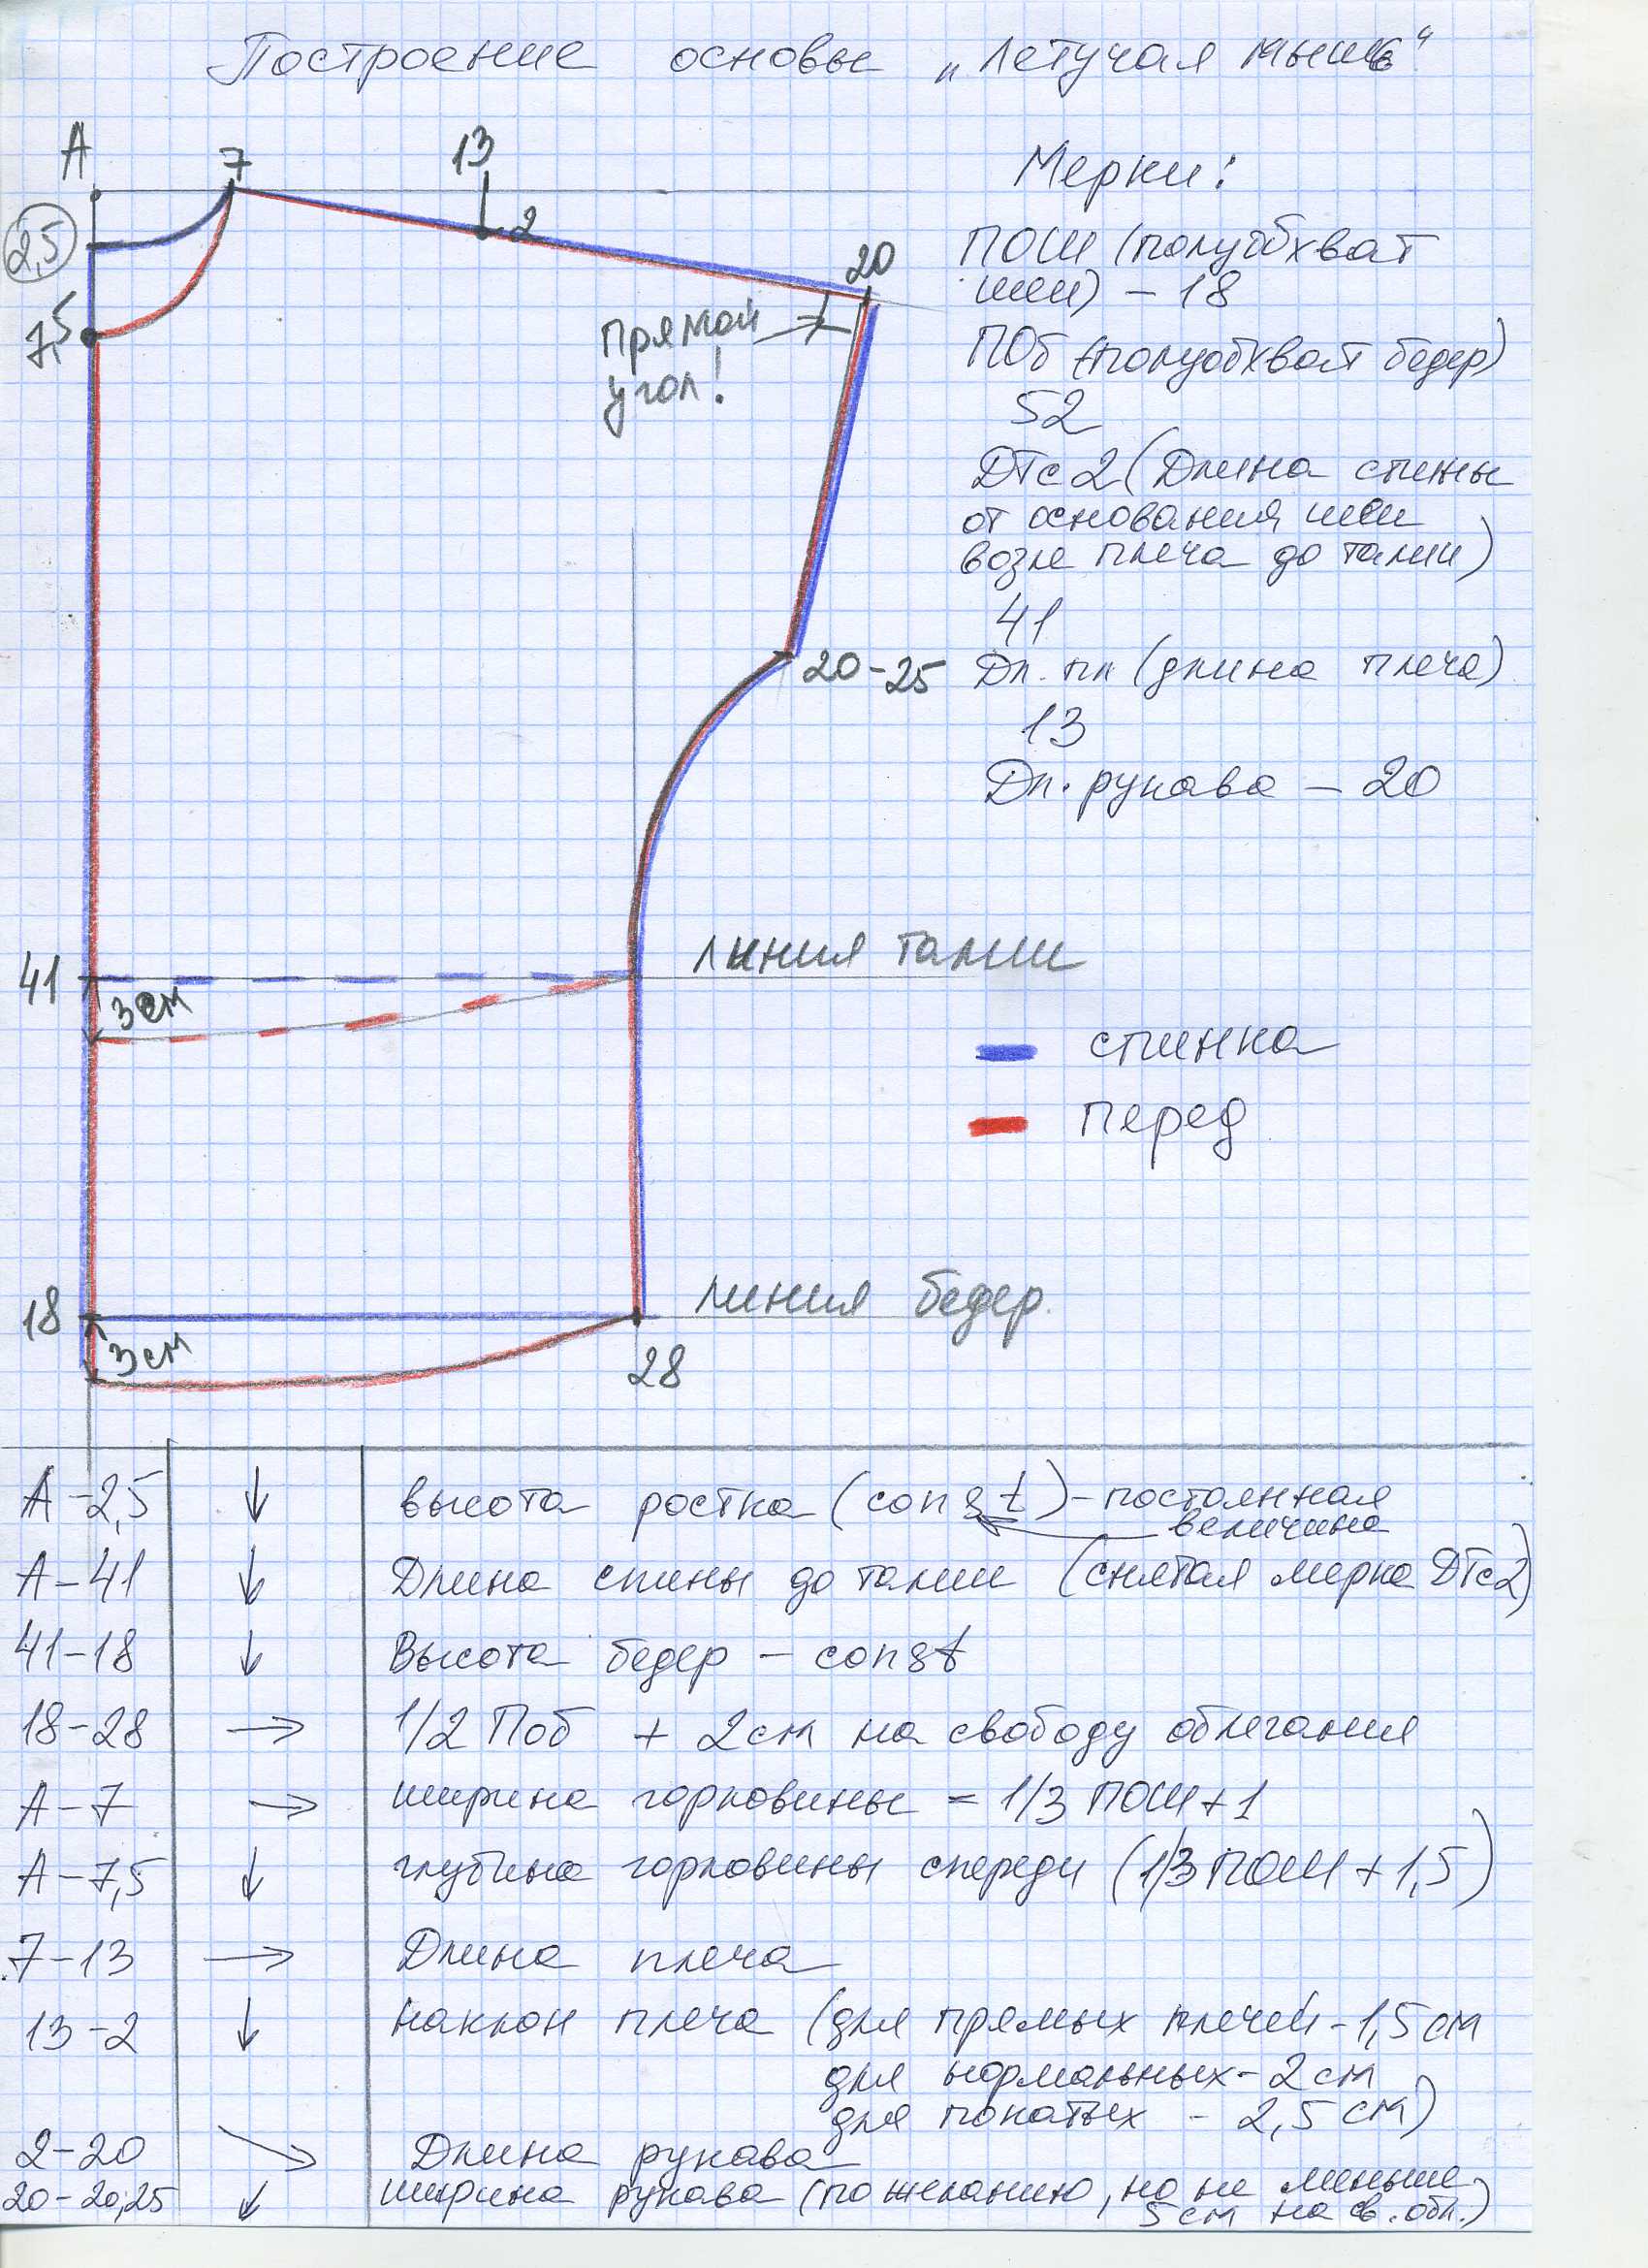 Построение основы „Летучая мышь"
А
7
13
2,5
2
20
7,5
прямой
угол!
20-25
41
3см
линия талии
18
3см
линия бедер
28
Мерки:
ПОШ (полуобхват
шеи) – 18
ПОб (полуобхват бедер)
52
ДТс2 (Длина спины
от основания шеи
возле плеча до талии)
41
Дл. пл (длина плеча)
13
Дл. рукава – 20
спинка
перед
А-2,5 ↓ высота ростка (const) - постоянная
величина
А-41 ↓ Длина спины до талии (снятая мерка ДТс2)
41-18 ↓ Высота бедер – const
18-28 → 1/2 Поб + 2см на свободу облегания
А-7 → ширина горловины = 1/3 ПОШ+1
А-7,5 ↓ глубина горловины спереди (1/3 ПОШ + 1,5)
7-13 → Длина плеча
13-2 ↓ наклон плеча (для прямых плечей - 1,5см
для нормальных - 2см
для покатых - 2,5 см)
2-20 ↘ Длина рукава
20-20,25 ↓ ширина рукава (по желанию, но не меньше
5см на св. обл.)